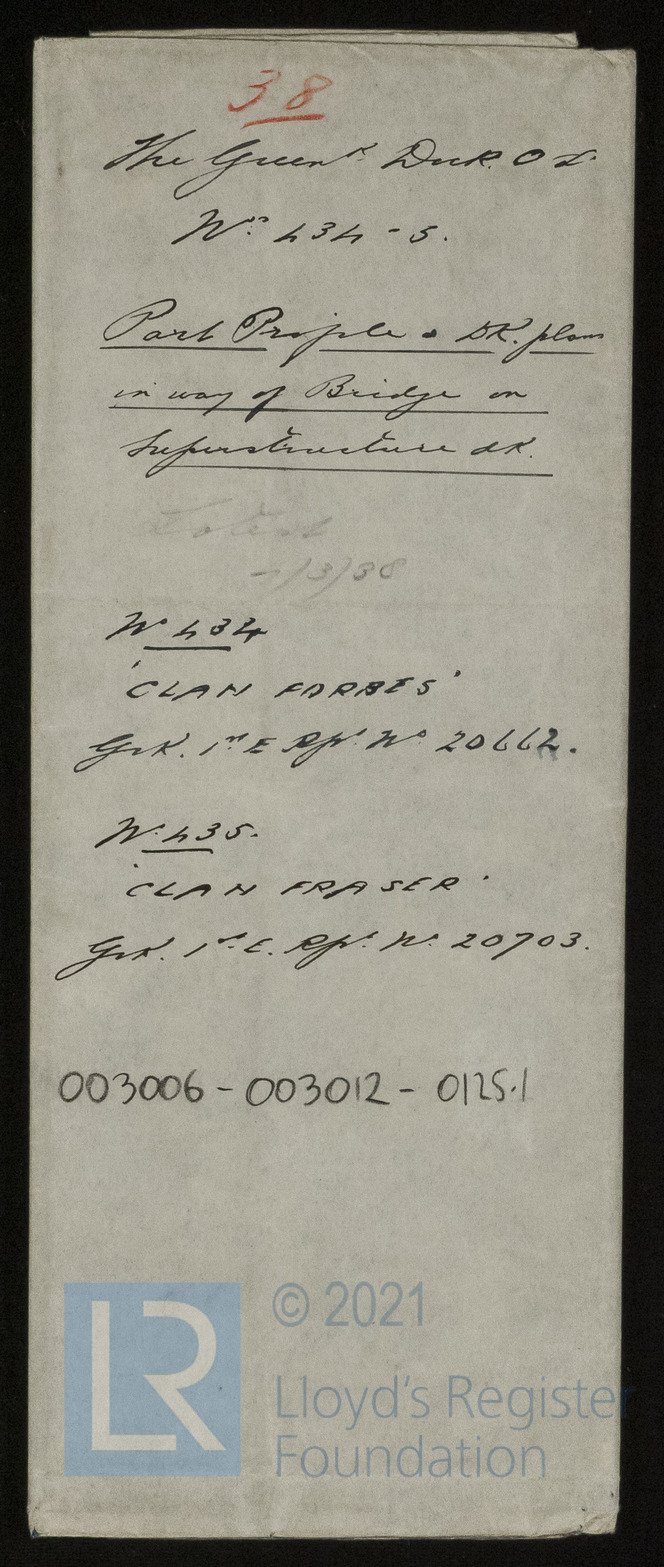 38
The Greenk. Dock. Co Ld
No. 434-5.
Part Profile & DK. plans
in way of Bridge on
Superstructure dk.
/3/38
No 434
'CLAN FORBES'
Grk. 1st E Rpt. No 20662.
No. 435.
'CLAN FRASER'
Grk. 1st. E. Rpt. No. 20703.
003006 - 003012 - 0125.1
LR
© 2021
Lloyd's Register
Foundation